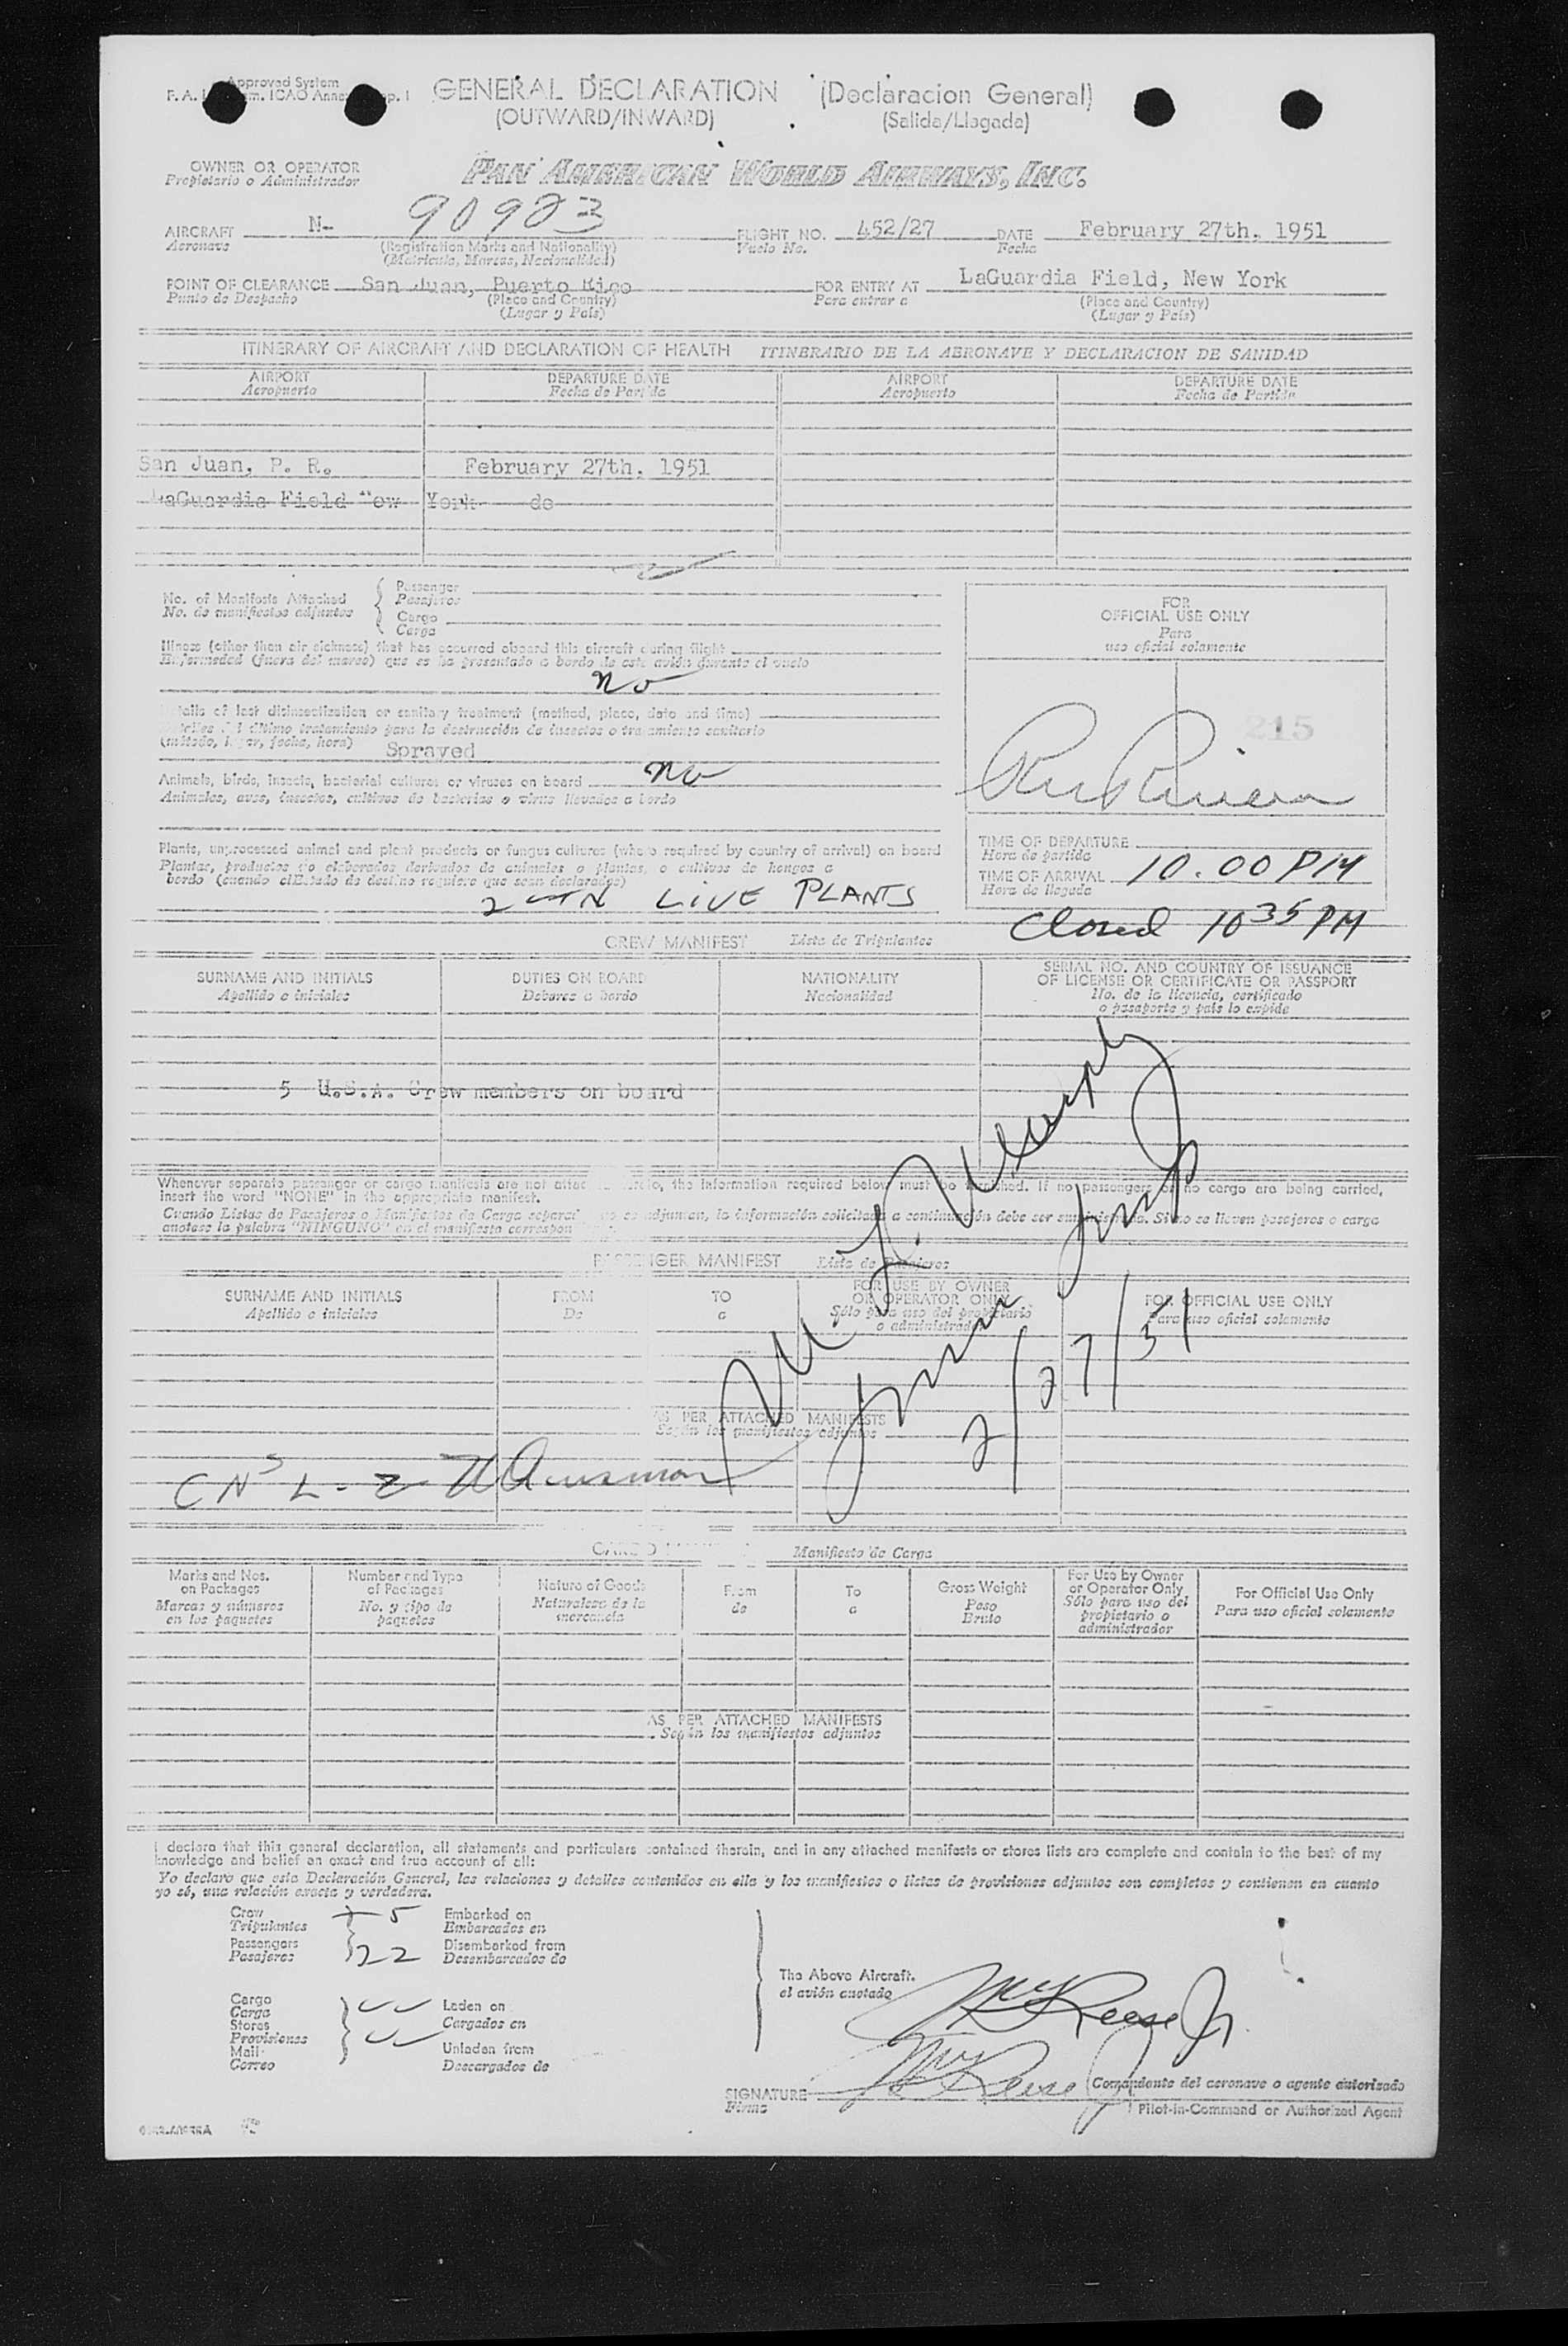 Approved System
GENERAL DECLARATION (Declaracion General)
(OUTWARD/INWARD) (Salida/Llegada)
OWNER OR OPERATOR
Propietario o Administrador
PAN AMERICAN WORLD AIRWAYS, INC.
AIRCRAFT N- 90923 FLIGHT NO. 452/27 DATE February 27th. 1951
Aeronave (Registration Marks and Nationality) Vuelo No. Fecha
(Matricula, Marcas, Nacionalidad)
POINT OF CLEARANCE San Juan, Puerto Rico FOR ENTRY AT LaGuardia Field, New York
Punto de Despacho (Place and Country) Para entrar a (Place and Country)
(Lugar y País) (Lugar y País)
ITINERARY OF AIRCRAFT AND DECLARATION OF HEALTH ITINERARIO DE LA AERONAVE Y DECLARACION DE SANIDAD
AIRPORT DEPARTURE DATE AIRPORT DEPARTURE DATE
Aeropuerto Fecha de Partida Aeropuerto Fecha de Partida
San Juan, P. R. February 27th. 1951
LaGuardia Field New York do
No. of Manifests Attached Passenger
No. de manifiestos adjuntos Pasajeros
Cargo
Carga
FOR
OFFICIAL USE ONLY
Para
uso oficial solamente
215
Illness (other than air sickness) that has occurred aboard this aircraft during flight
Enfermedad (fuera del mareo) que se ha presentado a bordo de este avión durante el vuelo
No
Details of last disinsectization or sanitary treatment (method, place, date and time)
Detalles del último tratamiento para la destrucción de insectos o tratamiento sanitario
(método, lugar, fecha, hora) Sprayed
Animals, birds, insects, bacterial cultures or viruses on board No
Animales, aves, insectos, cultivos de bacterias o virus llevados a bordo
Plants, unprocessed animal and plant products or fungus cultures (where required by country of arrival) on board
Plantas, productos no elaborados derivados de animales o plantas, o cultivos de hongos a
bordo (cuando el Estado de destino requiere que sean declarados)
2 CTN LIVE PLANTS
TIME OF DEPARTURE
Hora de partida
TIME OF ARRIVAL 10.00 PM
Hora de llegada
Closed 10 35 PM
CREW MANIFEST Lista de Tripulantes
SURNAME AND INITIALS DUTIES ON BOARD NATIONALITY SERIAL NO. AND COUNTRY OF ISSUANCE
OF LICENSE OR CERTIFICATE OR PASSPORT
Apellido e iniciales Deberes a bordo Nacionalidad No. de la licencia, certificado
o pasaporte y país lo expide
5 U.S.A. Crew members on board
Whenever separate passenger or cargo manifests are not attached hereto, the information required below must be furnished. If no passengers or no cargo are being carried,
insert the word "NONE" in the appropriate manifest.
Cuando Listas de Pasajeros o Manifiestos de Carga separados no se adjuntan, la información solicitada a continuación debe ser suministrada. Si no se llevan pasajeros o carga
anotese la palabra "NINGUNO" en el manifiesto
PASSENGER MANIFEST Lista de Pasajeros
SURNAME AND INITIALS FROM TO FOR USE BY OWNER
OR OPERATOR ONLY FOR OFFICIAL USE ONLY
Apellido e iniciales De a Sólo para uso del propietario
o administrador Para uso oficial solamente
2/27/51
AS PER ATTACHED MANIFESTS
Según los manifiestos adjuntos
CARGO Manifiesto de Carga
Marks and Nos.
on Packages
Marcas y números
en los paquetes
Number and Type
of Packages
No. y tipo de
paquetes
Nature of Goods
Naturaleza de la
mercancía
From
de
To
a
Gross Weight
Peso
Bruto
For Use by Owner
or Operator Only
Sólo para uso del
propietario o
administrador
For Official Use Only
Para uso oficial solamente
AS PER ATTACHED MANIFESTS
Según los manifiestos adjuntos
I declare that this general declaration, all statements and particulars contained therein, and in any attached manifests or stores lists are complete and contain to the best of my
knowledge and belief an exact and true account of all:
Yo declaro que esta Declaración General, las relaciones y detalles contenidos en ella y los manifiestos o listas de provisiones adjuntos son completos y contienen en cuanto
yo sé, una relación exacta y verdadera.
Crew 5 Embarked on
Tripulantes Embarcados en
Passengers 22 Disembarked from
Pasajeros Desembarcados de
Cargo
Carga Laden on
Stores Cargados en
Provisiones
Mail Unladen from
Correo Descargados de
The Above Aircraft.
el avión anotado
SIGNATURE Comandante del aeronave o agente autorizado
Firma Pilot-in-Command or Authorized Agent